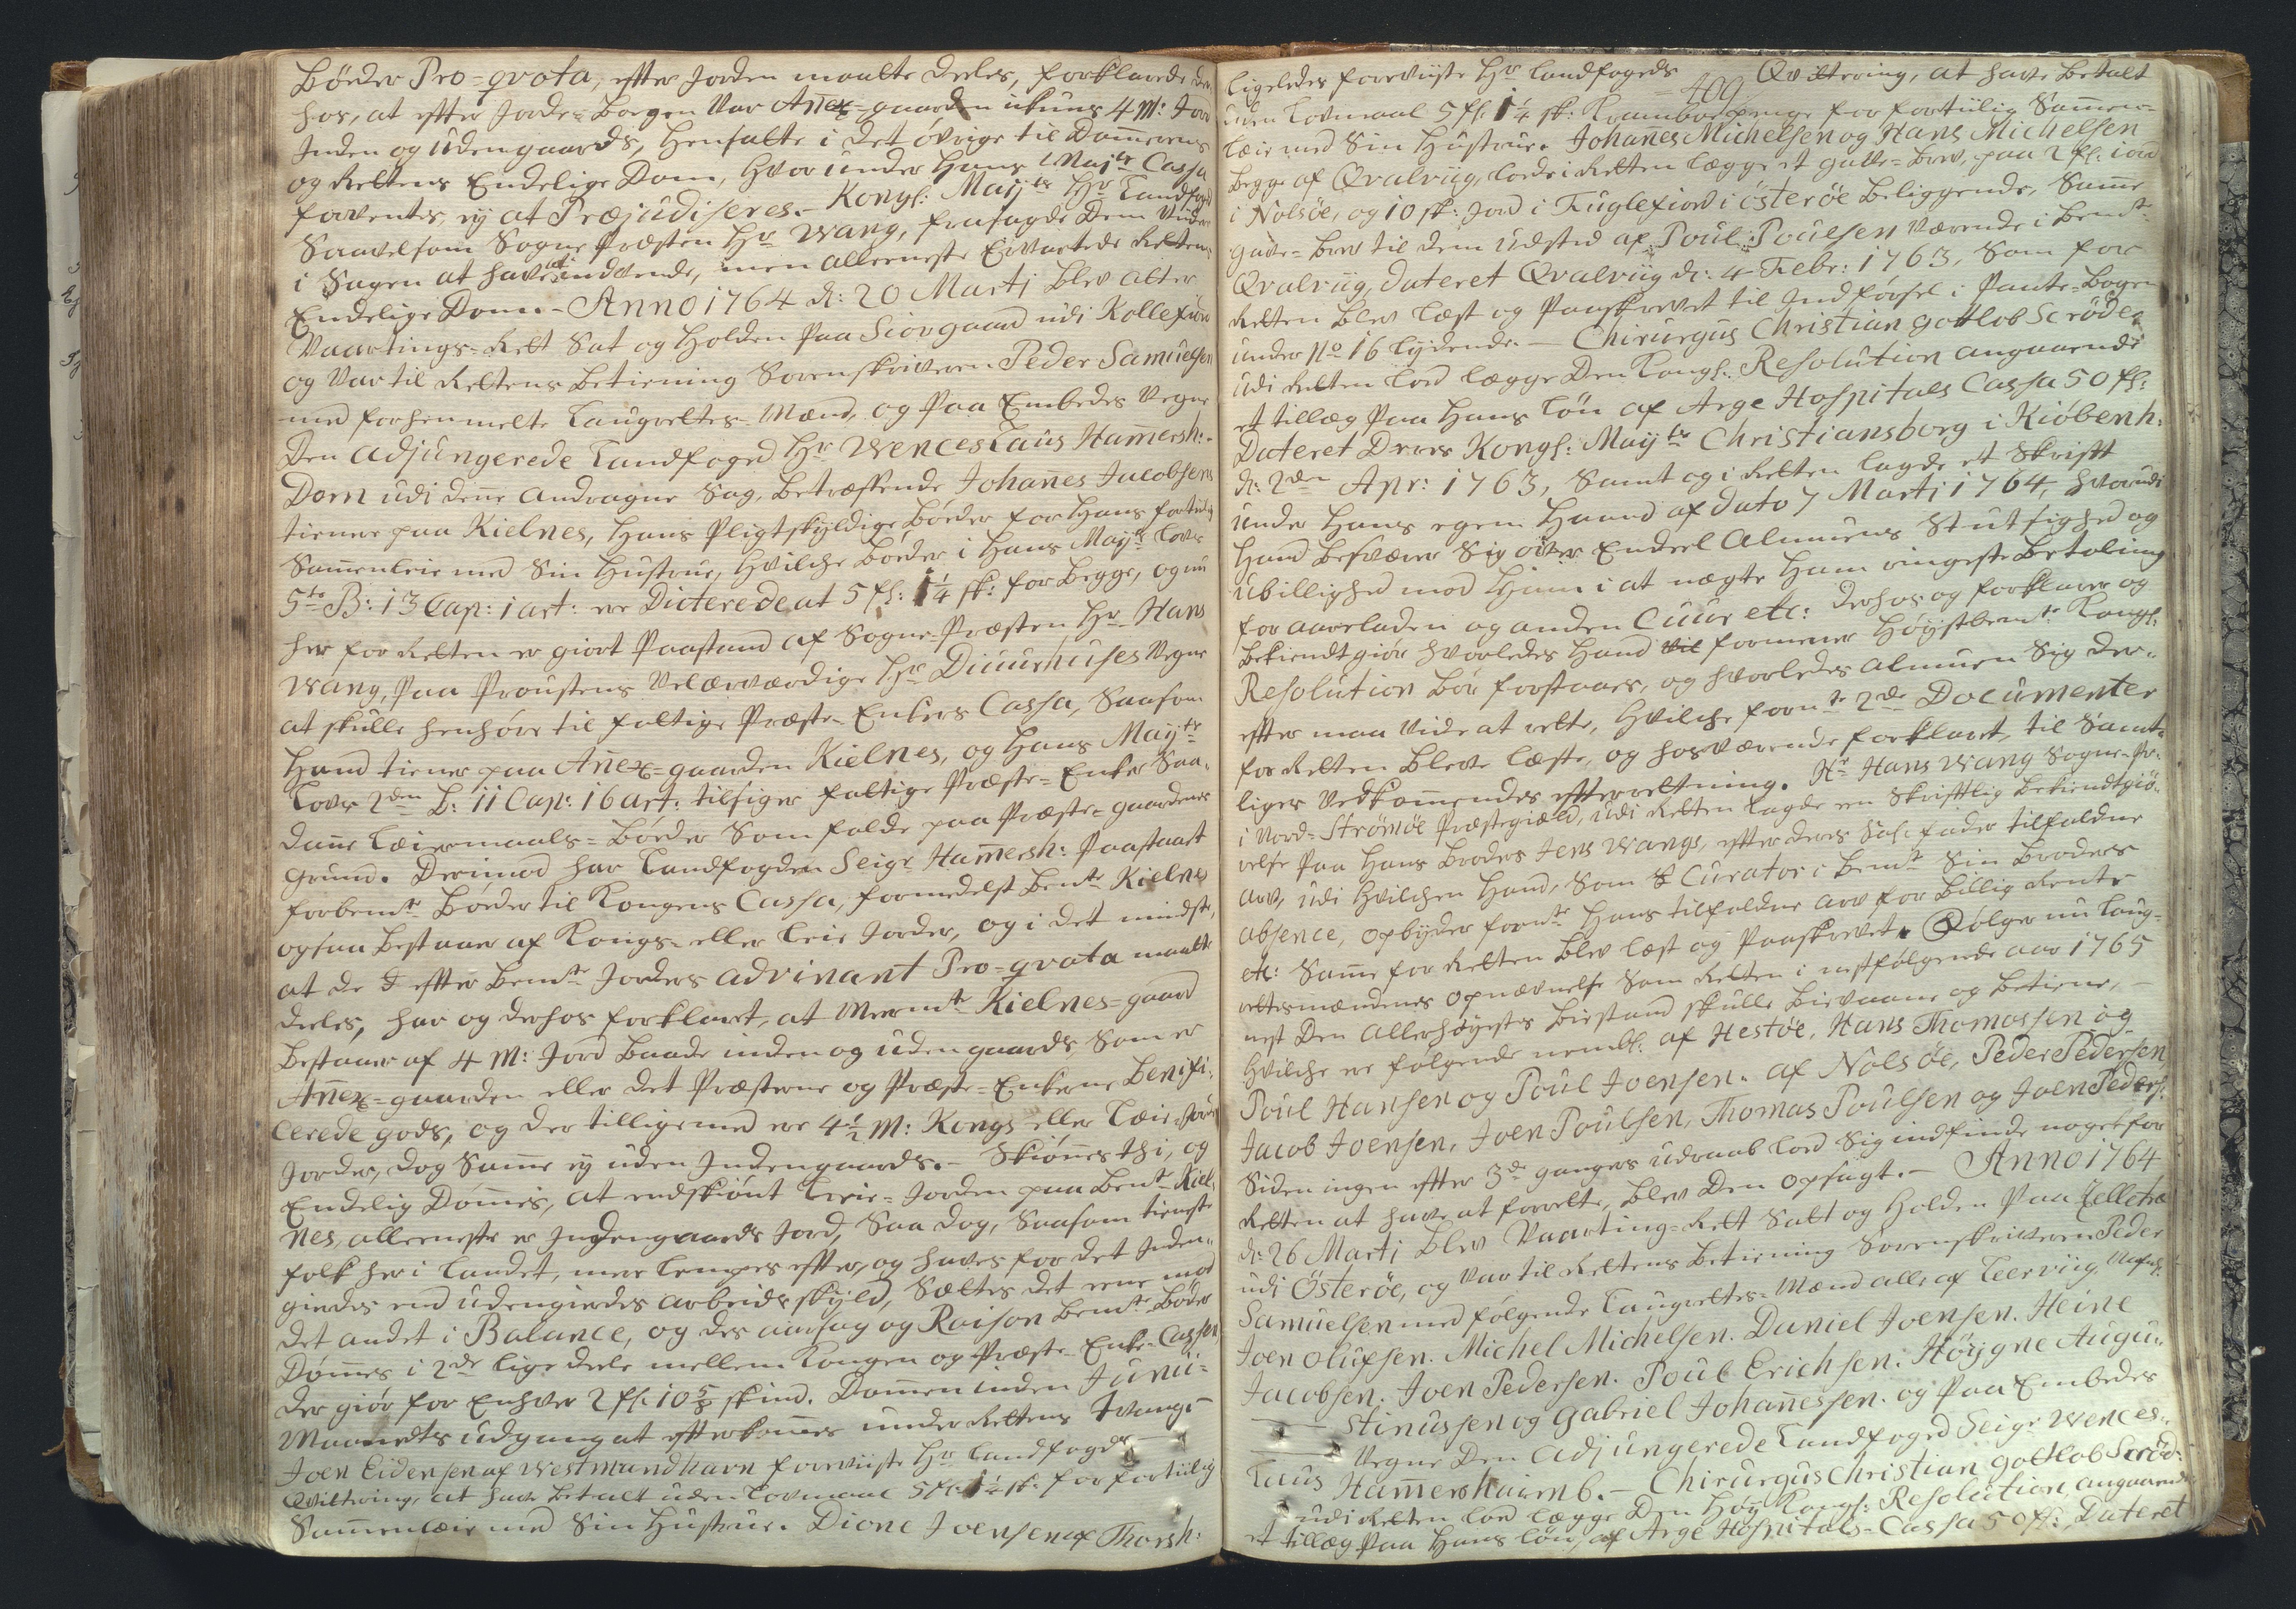 Böeder Pro=qvota, efter Jorden maatte deeles, forklarede der
hos, at efter Jorde=Bogen var Añex=gaarden ickuns 4 M: Jord
Inden og Udengaards, henfalte i det övrige til Dommerens
og Rettens Endelige Dom, hvorunder Hans Mayts Cassa
forventes, ey at Præjudiseres. – Kongl: Mayts Hr Landfoged
Saavelsom Sogne Præsten Hr Wang, frasagde dem videre
i Sagen at have at indvende, men alleeneste Ervartede Rettens
Endelige Dom. – Anno 1764 d: 20 Martj blev atter
Vaartings=Rett Sat og holden paa Siovgaard udi Kollefiord
og var til Rettens betiening Sorenskriveren Peder Samuelsen
med forhenmelte Laugrettes=Mænd, og paa Embeds Vegne
Den adjungerede Landfoged Hr Wenceslaus Hamersh: –
Dom udi deñe andragne Sag, betræffende Johañes Jacobsen
tienere paa Kielnes, hans Pligtskyldige böeder for hans fortidlig
Samenleie med Sin Hustrue, hvilche böeder i Hans Mayts Lovs
5te B: 13 Cap: 1 art: ere Dicterede at 5 fl: 1¼ sk: for begge, og nu
her for Retten er giort Paastand af Sogne=Præsten Hr Hans
Wang, paa Proustens Velærværdige Hr Diuurhuses Vegne
at skulle henhöre til fattige Præste=Enkers Cassa, Saasom
Hand tiener paa Añex=gaarden Kielnes, og Hans Mayts
Lovs 2den B: 11 Cap: 16 art: tilsiger fattige Præste=Enker Saa=
dañe Leiermaals=böeder Som falde paa Præste=gaardenes
Grund. Derimod har Landfogden Seigr Hamersh: Paastaaet
forbemte böeder til Kongens Cassa, formedelst bemte Kielnes
ogsaa bestaaer af Kongs= eller leie Jorder, og i det mindste,
at de efter bemte Jorders advinant Pro=qvota maatte
deeles, har og derhos forklaret, at Meermte Kielnes=gaard
bestaaer af 4 M: Jord baade inden og udengaards, Som er
Añex=gaarden eller det Præsterne og Præste=Enkerne Benifi=
cerede gods, og der tilligemed ere 4½ M: Kongs eller Leie=Jord
Jorder, dog Same ey uden Indengaards. – Skiönnes thi, og
Endelig Dömes, at endskiönt Leie=Jorden paa bemte Kiel,
nes, alleeneste er Indengaards Jord, Saa dog, Saasom tieneste
folk her i Landet, mere lempes efter, og haves for det Inden=
gierdes end udengierdes arbeids skyld, Sættes det eene mod
det andet i Balance, og des aarsag og Raison bemte Böder
Dömes i 2de lige deele mellem Kongen og Præste=Enke=Cassen
der giör for Enhver 2 fl: 10⅝ skind. Domen inden Junii=
Maanedts udgang at efterkomes under Rettens tvang. –
Joen Eidensen af Westmandhavn foreviiste Hr Landfogdes
Qvittering, at have betalt uden Lovmaal 5 fl: 1¼ sk: for fortiilig
Samenleie med Sin Hustrue. Dione Joensen af Thorsh:
409
ligeledes foreviiste Hr Landfogeds Qvittering, at have betalt
uden Lovmaal 5 fl: 1¼ sk: for fortiilig Samen=
leie med Sin Hustrue. Johañes Michelsen og Hans Michelsen
begge af Qvalviig, lod i Retten lægge et gave=brev, paa 2 fl: iord
i Nolsöe, og 10 sk: Jord i Fuglefiord i österöe beliggende, Same
gave=brev til dem udsted af Poul Poulsen værende i bemte
Qvalviig, dateret Qvalviig d: 4 Febr: 1763, Som for
Retten blev læst og Paaskrevet til Indförsel i Pante=Bogen
under No 16 lydende. – Chirurgus Christian gottlob Scröder
udi Retten lod lægge Den Kongl. Resolution angaaende
et tillæg paa Hans lön af Arge Hospitals Cassa 50 fl:
Dateret Deres Kongl: Mayts Christiansborg i Kiöbenh:
d: 2den Apr: 1763, Samt og i Retten lagde et Skrift
under Hans egen Haand af dato 7 Martj 1764, hvorudi
Hand besværer Sig over Endeel Almuens Stutsighed og
Ubillighed mod Ham i at nægte Ham ringeste betaling
for aareladen og anden Cuur etc: derhos og forklarer og
bekiendtgiör hvorledes Hand formener Höystbemte Kongl.
Resolution bör forstaaes, og hvorledes Almuen Sig der=
efter maa vide at rette, hvilche fornte 2de Documenter
for Retten bleve læste, og hosværende forklaret, til Samt=
liges Vedkomendes efterretning. Hr Hans Wang Sogne=Pr:
i Nord=Strömöe Præstegield, udi Retten lagde en Skriftlig bekiendtgiö=
relse paa Hans Broders Jens Wangs, efter deres Sal: fader tilfaldne
arv, udi hvilchen Hand, Som Curator i bemte Sin Broders
absence, opbyder fornte Hans tilfaldne arv for billig Rente
etc: Same for Retten blev læst og Paaskrevet. Fölger nu Laug=
rettesmændenes opnævnelse Som Retten i nestfölgende aar 1765
nest Den Allerhöyestes bistand skulle bievaane og betiene, –
hvilche ere fölgende nembl: af Hestöe, Hans Thomassen og
Poul Hansen og Poul Joensen. af Nolsöe, Peder Pedersen,
Jacob Joensen, Joen Poulsen, Thomas Poulsen og Joen Peders:
Siden ingen efter 3de ganges udraab lod Sig indfinde noget for
Retten at have at forrette, blev Den opsagt. – Anno 1764
d: 26 Martj blev Vaarting=Rett Satt og holden paa Zelletræ
udi Österöe, og var til Rettens betiening Sorenskriveren Peder
Samuelsen med fölgende Laugrettes=Mænd alle af Leerviig,
Joen Olufsen. Michel Michelsen. Daniel Joensen. Heine
Jacobsen. Joen Pedersen. Poul Erichsen. Höygne Augu=
stinussen og Gabriel Johañessen. og paa Embedes
Vegne Den adjungerede Landfoged Seigr Wences=
laus Hamershaimb. – Chirurgus Christian gottlob Scröd:
udi Retten lod lægge Den Höy Kongl: Resolution, angaaende
et tillæg paa Hans lön, af Arge Hospitals=Cassa 50 fl: Dateret